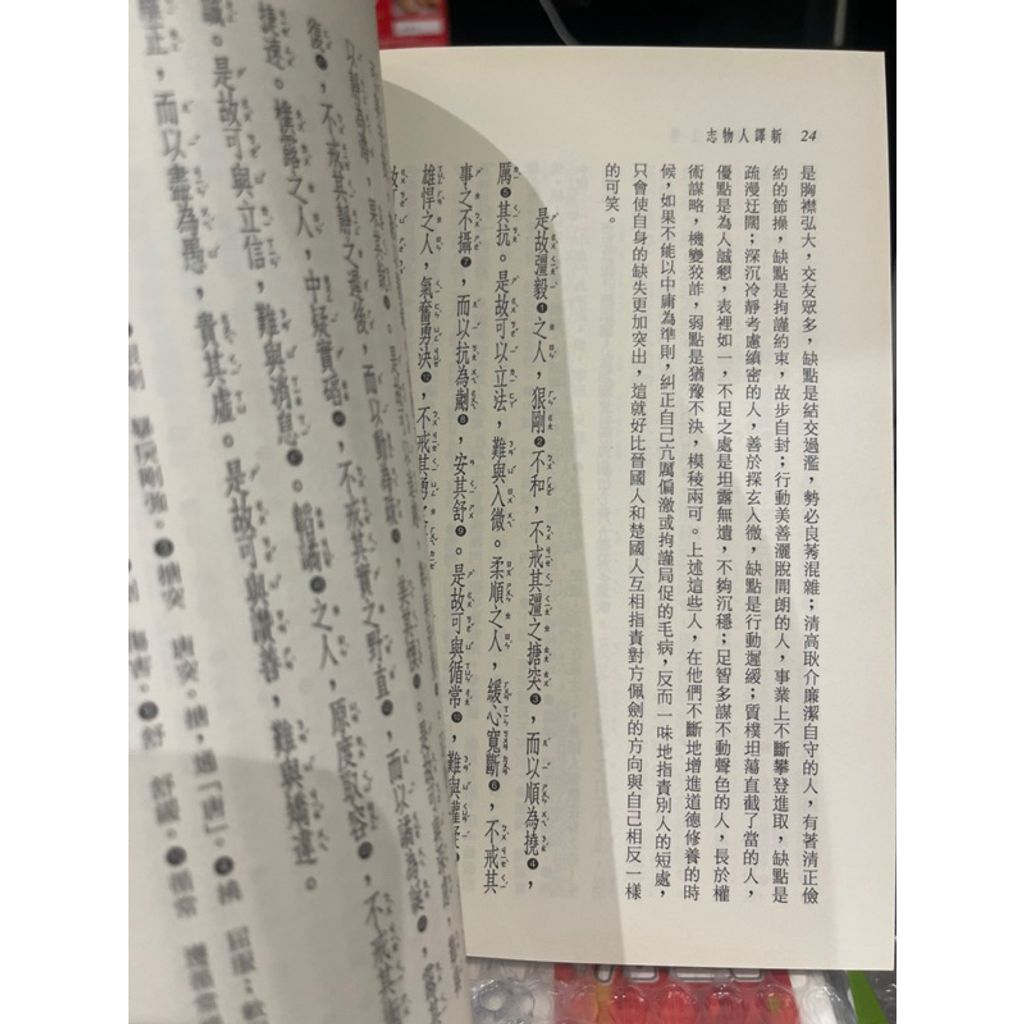 新譯人物志 24
是胸襟弘大，交友眾多，缺點是結交過濫，勢必良莠混雜；清高耿介廉潔自守的人，有著清正儉
約的節操，缺點是拘謹約束，故步自封；行動美善灑脫開朗的人，事業上不斷攀登進取，缺點是
疏漫迂闊；深沉冷靜考慮縝密的人，善於探玄入微，缺點是行動遲緩；質樸坦蕩直截了當的人，
優點是為人誠懇，表裡如一，不足之處是坦露無遺，不夠沉穩；足智多謀不動聲色的人，長於權
術謀略，機變狡詐，弱點是猶豫不決，模稜兩可。上述這些人，在他們不斷地增進道德修養的時
候，如果不能以中庸為準則，糾正自己亢厲偏激或拘謹局促的毛病，反而一味地指責別人的短處，
只會使自身的缺失更加突出，這就好比晉國人和楚國人互相指責對方佩劍的方向與自己相反一樣
的可笑。
是故彊毅❶之人，狠剛❷不和，不戒其彊之搪突❸，而以順為撓❹，
厲❺其抗。是故可以立法，難與入微。柔順之人，緩心寬斷❻，不戒其
事之不攝❼，而以抗為劌❽，安其舒❾。是故可與循常❿，難與權疑
雄悍之人，氣奮勇決⓬，不戒其勇
復，不戒其靜之遲後，而以動
捷速。樸露之人，中疑實磂，不戒其實之野直，而以譎為
識。是故可與立信，難與消息。韜譎之人，原度取容，不戒其
正，而以盡為愚，貴其虛。是故可與讚善，難與矯違。
搪突 唐突。搪，通「唐」。❹撓 屈服；
舒 舒緩。 循常